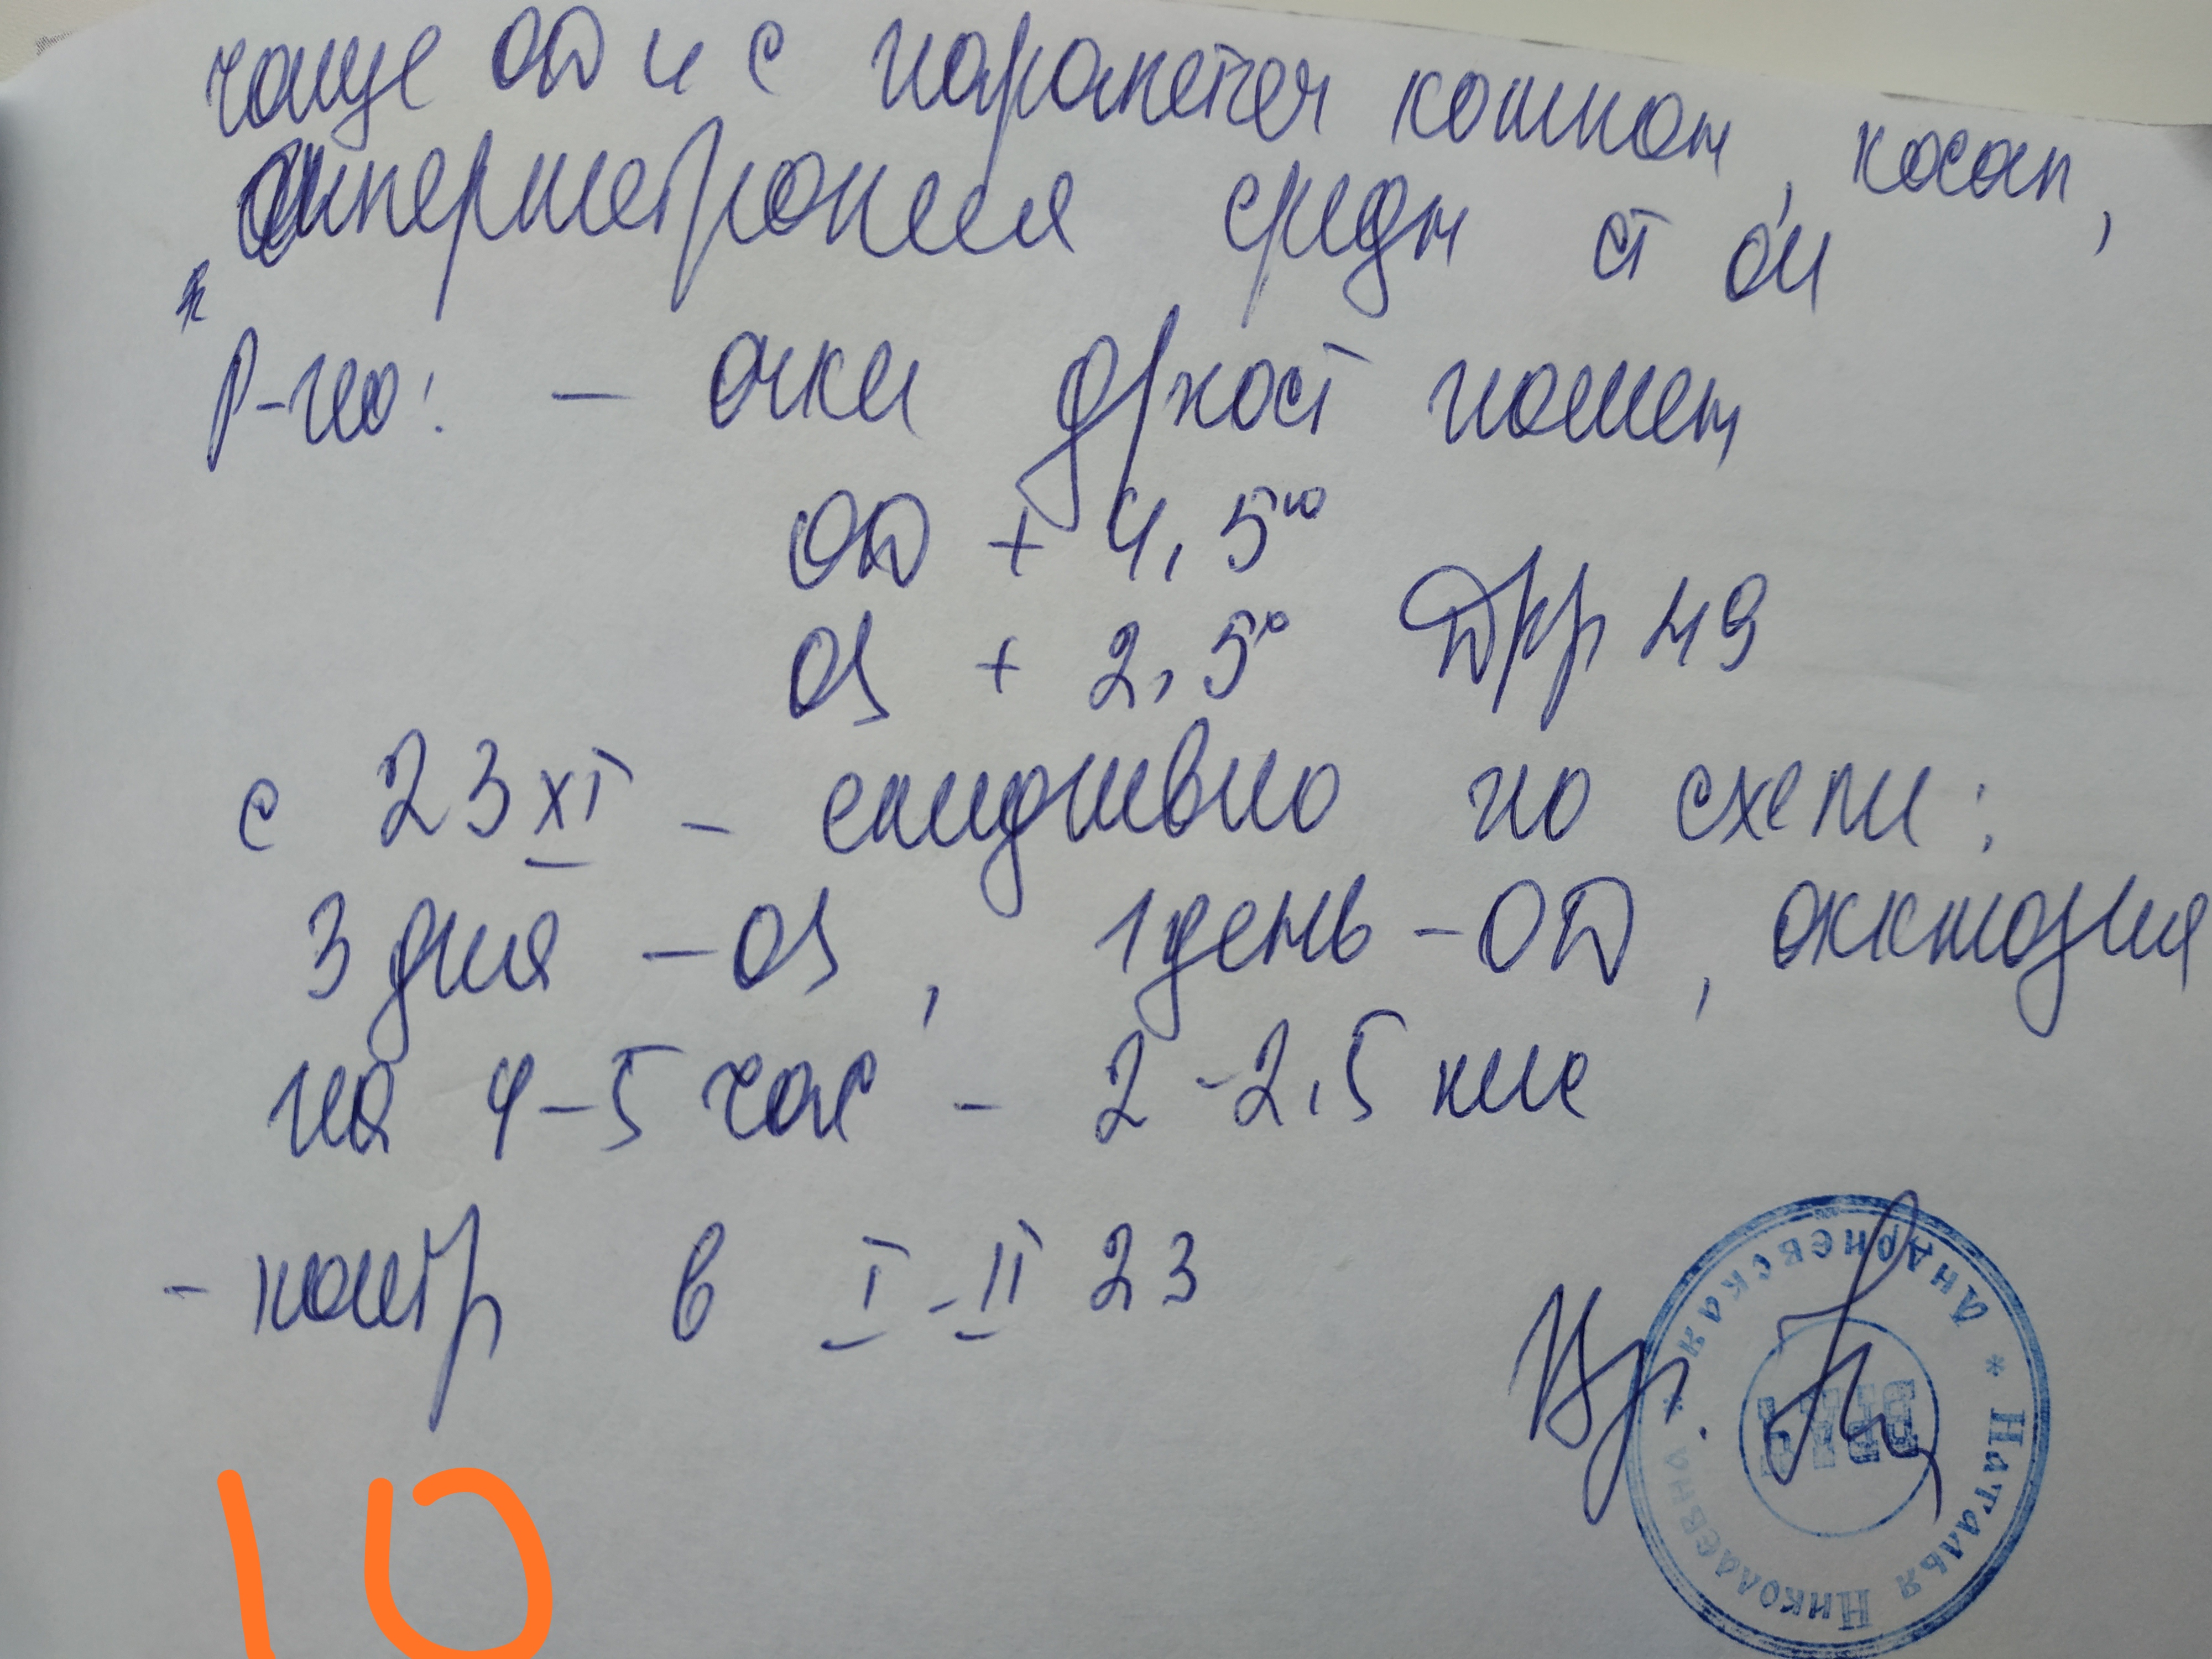 чаще OD и с паралетич компон, косогл,
гиперметропия средн ст OU
Р-но: - очки д/пост ношен
OD + 4,5°
OS + 2,5° Дрр 49
с 23 XI - ежедневно по схеме:
3 дня - OS, 1 день - OD, окклюзия
на 4-5 час - 2-2,5 мес
- контр в I-II 23
Вр.
Андриевская * Наталья Николаевна *
ВРАЧ
10